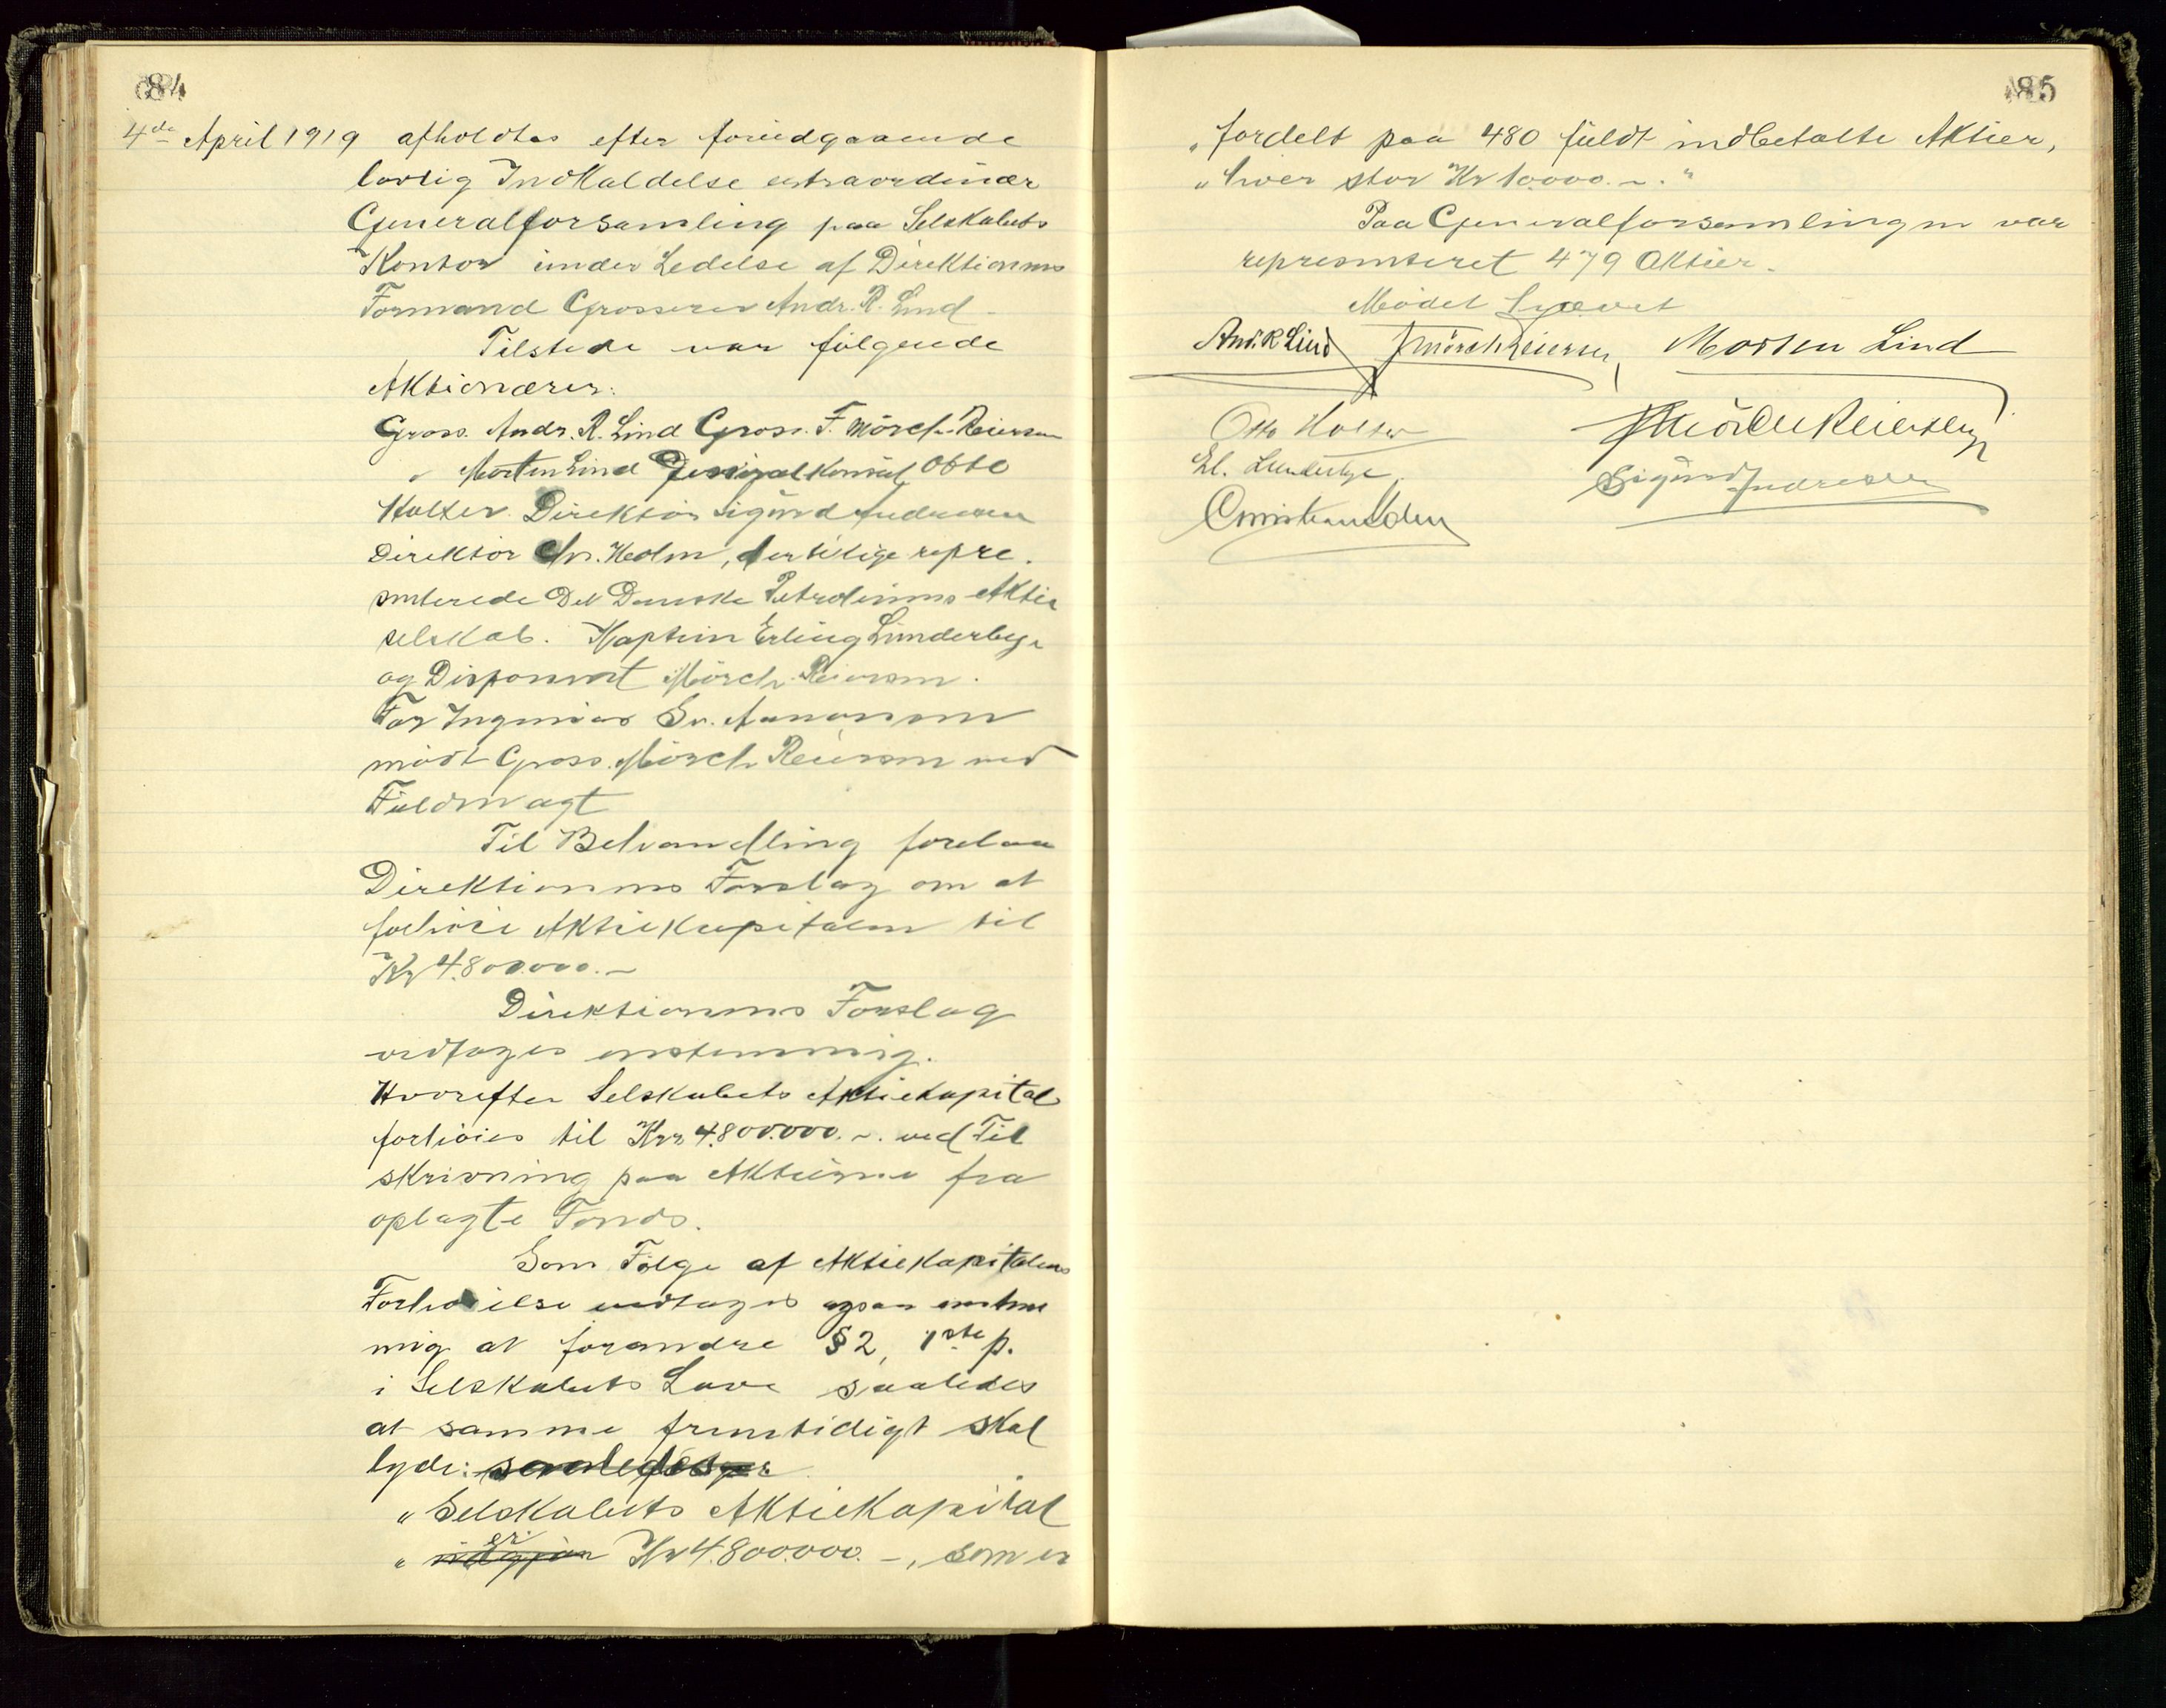 84
4de April 1919 afholdtes efter forudgaaende
lovlig Indkaldelse extraordinær
Generalforsamling paa Selskabets
Kontor under Ledelse af Direktionens
Formand Grosserer Andr. R. Lind.
Tilstede var følgende
Aktionærer:
Gross. Andr. R. Lind Gross. F. Mörch-Reiersen
" Morten Lind Generalkonsul Otto
Halter Direktør Sigurd Andresen
Direktör Chr. Holm, der tilige repre-
senterede Det Danske Petroleums Aktie
selskab. Kaptein Erling Lunderbye
og Disponent Mörch Reiersen.
For Ingeniør Sv.
mödt Gross. Mörch Reiersen med
Fuldmagt
Til Behandling forelaa
Direktionens Forslag om at
forhöie Aktiekapitalen til
Kr 4.800.000.-
Direktionens Forslag
vedtages enstemmig.
Hvorefter Selskabets Aktiekapital
forhöies til Kr 4.800.000.-. ved Til
skrivning paa Aktierne fra
oplagte Fonds.
Som Fölge af Aktiekapitalens
Forhöielse vedtages ogsaa enstem
mig at forandre §2, 1ste p.
i Selskabets Love saaledes
at samme fremtidigt skal
lyde:
"Selskabets Aktiekapital
" er Kr 4.800.000.-, som er
85
"fordelt paa 480 fuldt indbetalte Aktier,
"hver stor Kr 10.000.-."
Paa Generalforsamlingen var
representeret 479 Aktier.
Mödet hævet
Andr. R Lind F Mörch Reiersen Morten Lind
Otto Halter F Mörch Reiersen
El. Lunderbye Sigurd Andresen
Christian Holm